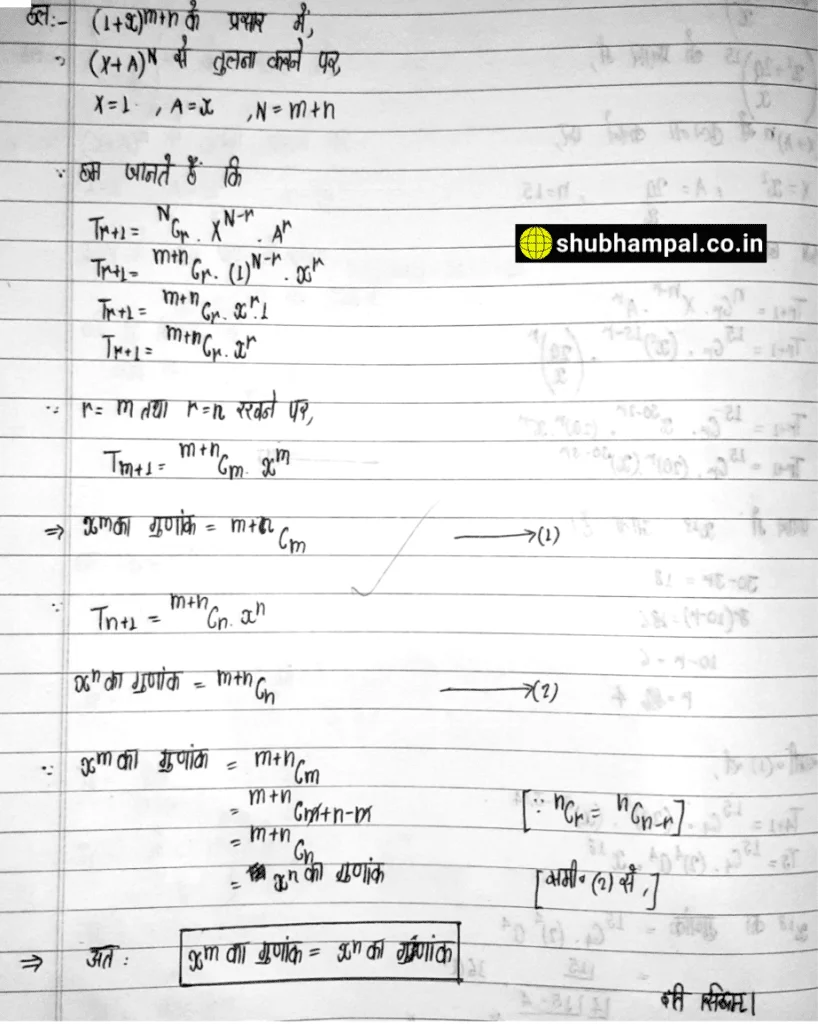 हल:- (1+x)^{m+n} के प्रसार में,
∵ (X+A)^N से तुलना करने पर,
X=1 , A=x , N=m+n
∵ हम जानते हैं कि
T_{r+1} = ^N C_r . X^{N-r} . A^r
shubhampal.co.in
T_{r+1} = ^{m+n}C_r . (1)^{N-r} . x^r
T_{r+1} = ^{m+n}C_r . x^r . 1
T_{r+1} = ^{m+n}C_r . x^r
∵ r=m तथा r=n रखने पर,
T_{m+1} = ^{m+n}C_m . x^m
⇒ x^m का गुणांक = ^{m+n}C_m → (1)
∵ T_{n+1} = ^{m+n}C_n . x^n
x^n का गुणांक = ^{m+n}C_n → (2)
∵ x^m का गुणांक = ^{m+n}C_m
= ^{m+n}C_{m+n-m} [∵ ^nC_r = ^nC_{n-r}]
= ^{m+n}C_n
= x^n का गुणांक [समी० (2) से,]
⇒ अतः x^m का गुणांक = x^n का गुणांक
इति सिद्धम्।